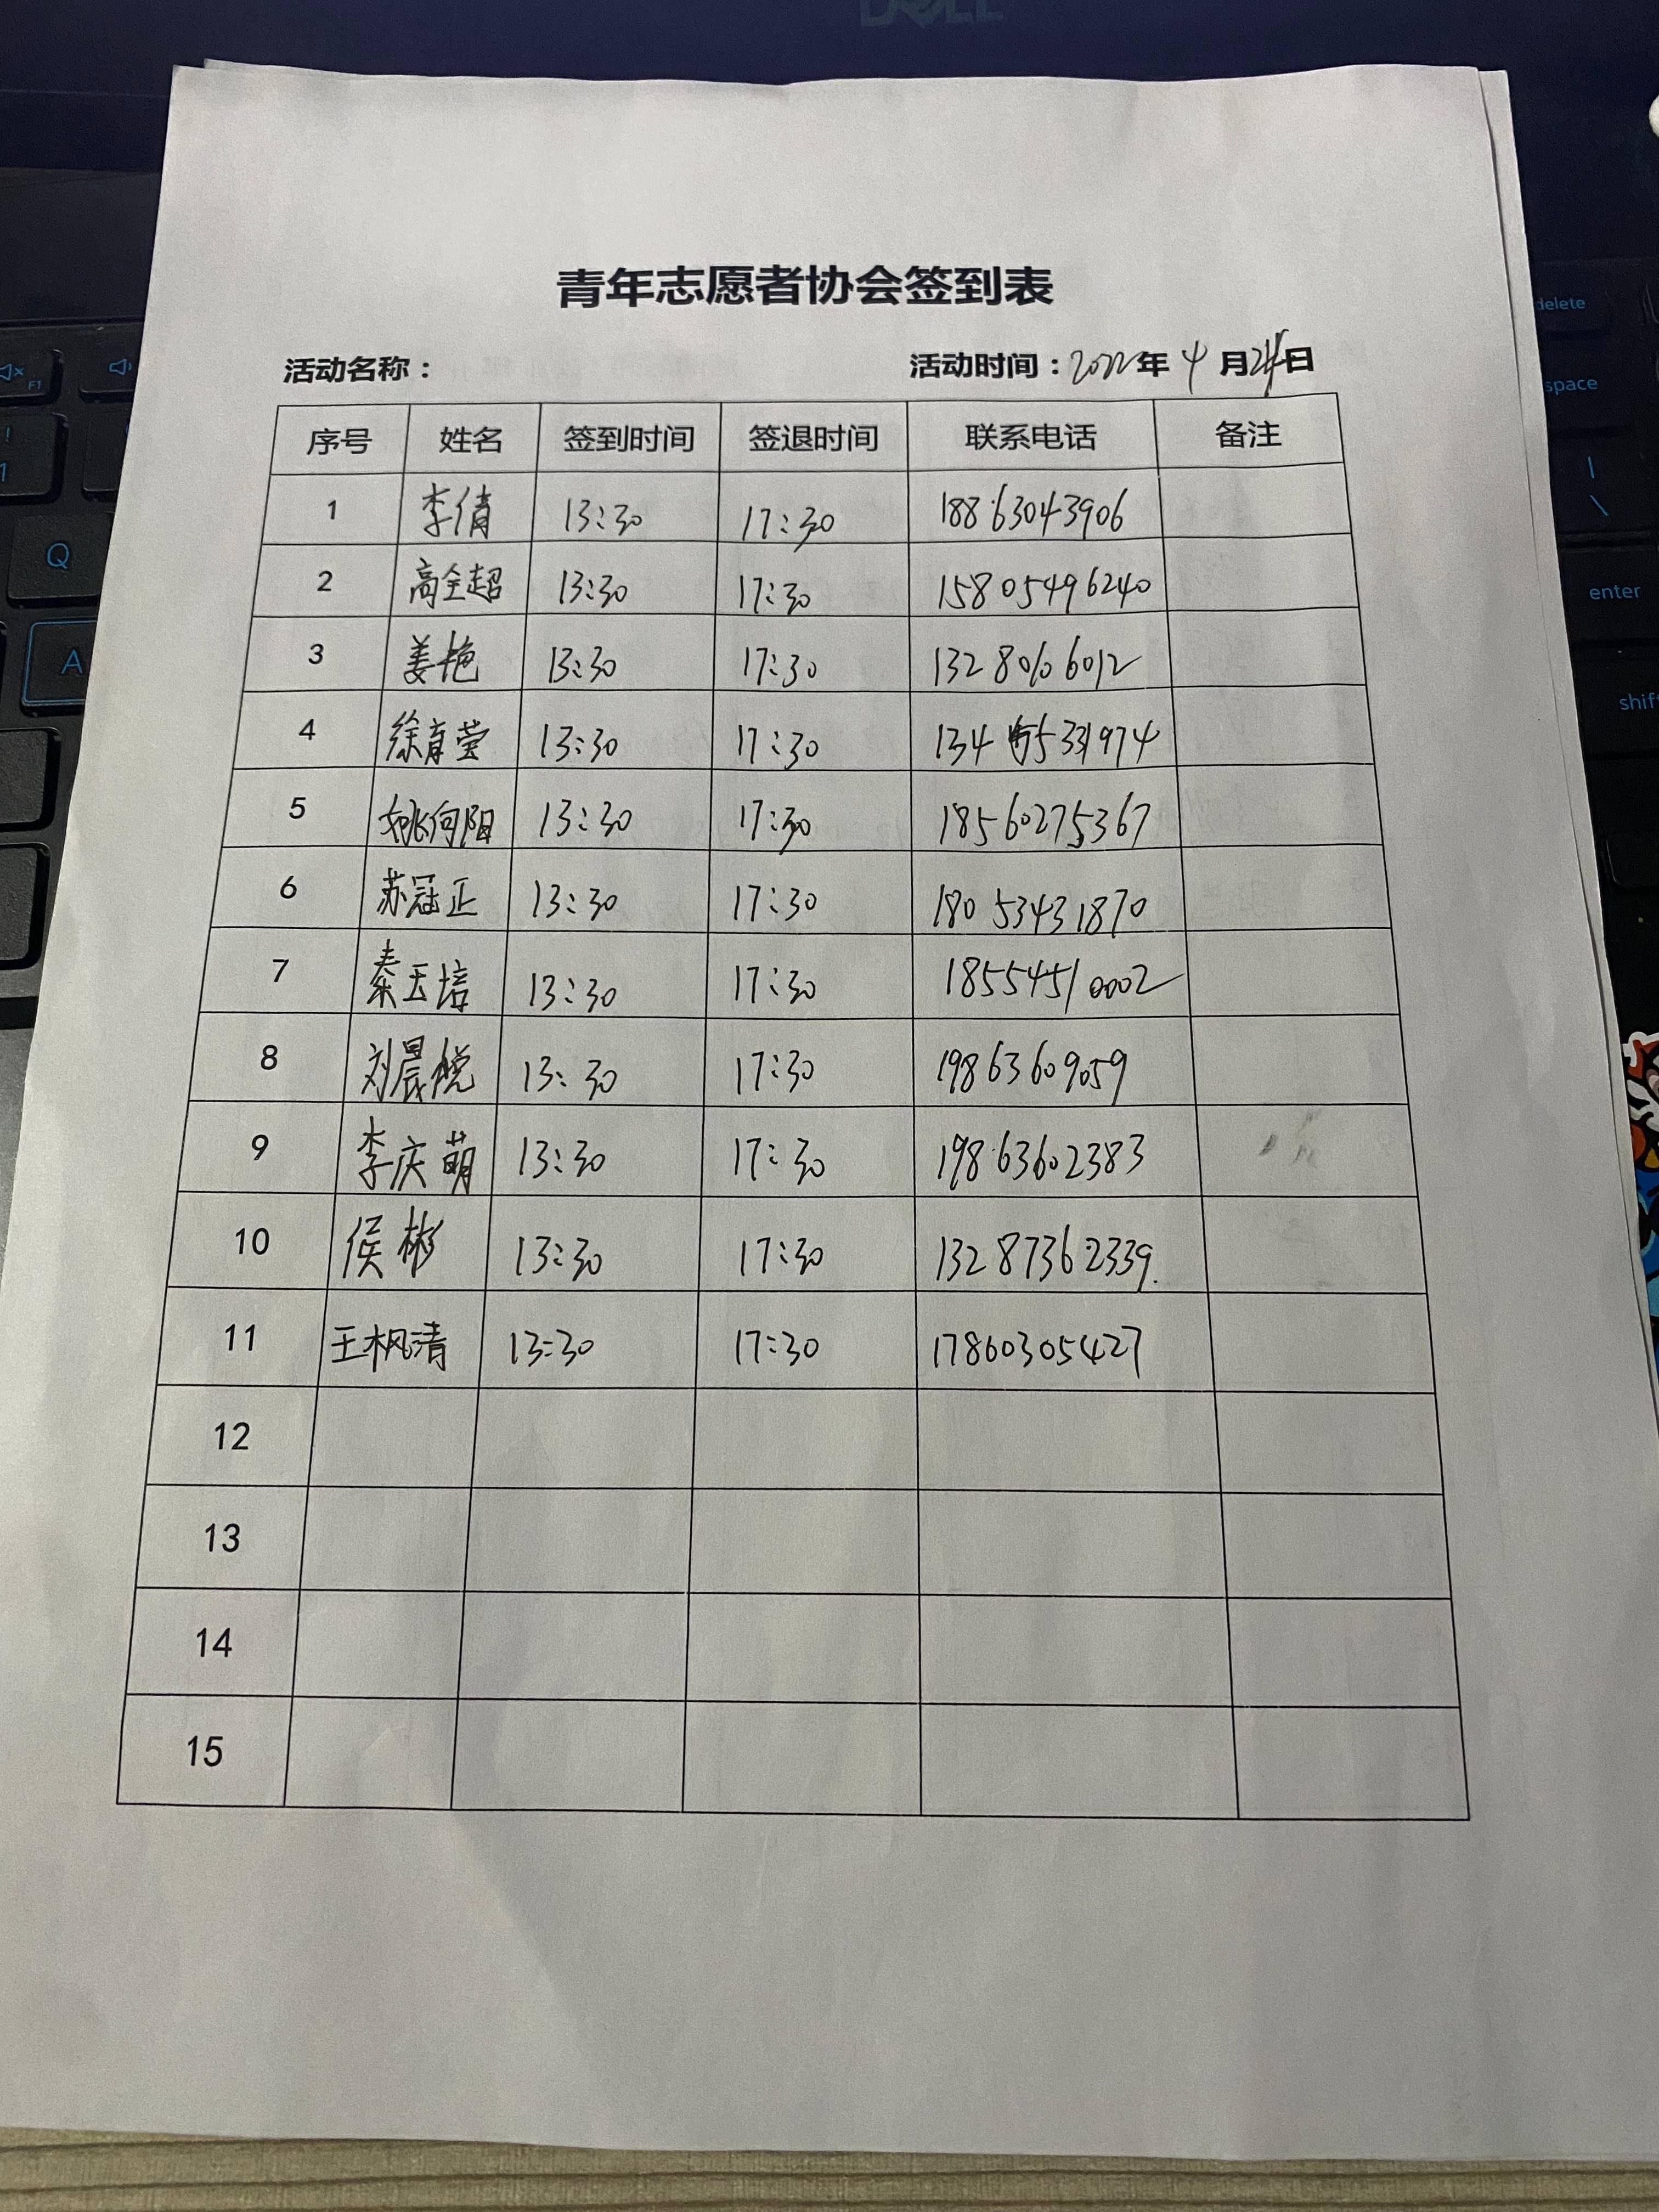 DELL
青年志愿者协会签到表
活动名称： 活动时间：2022年 4 月24日
序号 姓名 签到时间 签退时间 联系电话 备注
1 李倩 13:30 17:30 18863043906
2 高全超 13:30 17:30 15805496240
3 姜艳 13:30 17:30 13280166012
4 徐育莹 13:30 17:30
5 姚向阳 13:30 17:30 18560275367
6 苏冠正 13:30 17:30 18053431870
7 秦玉培 13:30 17:30 18554510002
8 刘晨悦 13:30 17:30 19863609059
9 李庆萌 13:30 17:30 19863602383
10 侯彬 13:30 17:30 13287362339.
11 王枫清 13:30 17:30 17860305427
12
13
14
15
delete
space
enter
shift
F1
!
1
Q
A
|
\